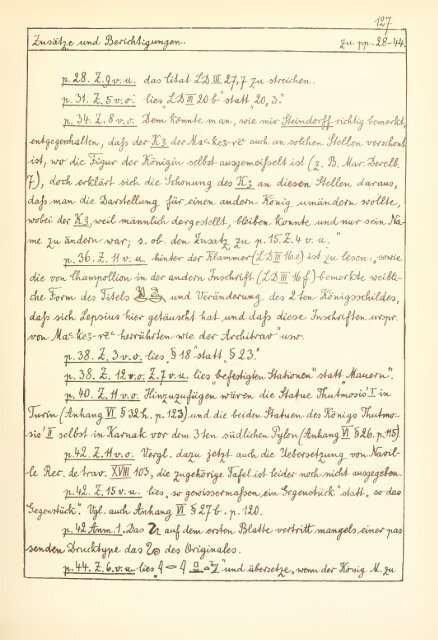 127
Zusätze und Berichtigungen. zu pp. 28-44.
p. 28. Z. 9 v. u. das Citat LD III. 27,7 zu streichen.
p. 31. Z. 5 v. o. lies „LD III 20 b" statt „20, 3."
p. 34. Z. 8 v. o. Dem könnte man, wie mir Steindorff richtig bemerkt,
entgegenhalten, daſs der K3 der auch an solchen Stellen verschont
ist, wo die Figur der Königin selbst ausgemeiſselt ist (z. B. Mar. Derelb.
7), doch erklärt sich die Schonung des K3 an diesen Stellen daraus,
daſs man die Darstellung für einen andern König umändern wollte,
wobei der K3, weil männlich dargestellt, bleiben konnte und nur sein Na-
me zu ändern war; s. ob. den Zusatz zu p. 15. Z. 4 v. u."
p. 36. Z. 11 v. u. hinter der Klammer (LD III 16 a) ist zu lesen: „sowie
die von Champollion in der andern Inschrift (LD III 16 f) bemerkte weibli-
che Form des Titels und Veränderung des 2ten Königsschildes,
daſs sich Lepsius hier getäuscht hat und daſs diese Inschriften urspr.
von herrührten wie der Architrav" usw.
p. 38. Z. 3 v. o. lies „§ 18 statt „§ 23."
p. 38. Z. 12 v. o. Z. 7 v. u. lies „befestigten Stationen" statt „Mauern".
p. 40. Z. 11 v. o. Hinzuzufügen wären die Statue Thutmosis' I in
Turin (Anhang VI § 32 h. p. 123) und die beiden Statuen des Königs Thutmo-
sis' II selbst in Karnak vor dem 3ten südlichen Pylon (Anhang VI § 26. p. 115)
p. 42. Z. 11 v. o. Vergl. dazu jetzt auch die Uebersetzung von Navil-
le Rec. de trav. XVIII 103, die zugehörige Tafel ist leider noch nicht ausgegeben.
p. 42. Z. 15 v. u. lies „so gewissermaſsen ein Gegenstück" statt „so das
Gegenstück". Vgl. auch Anhang VI § 27 b. p. 120.
p. 42 Anm. 1. Das auf dem ersten Blatte vertritt mangels einer pas
senden Drucktype das des Originales.
p. 44. Z. 6 v. u. lies „ " und übersetze „wenn der König M. zu